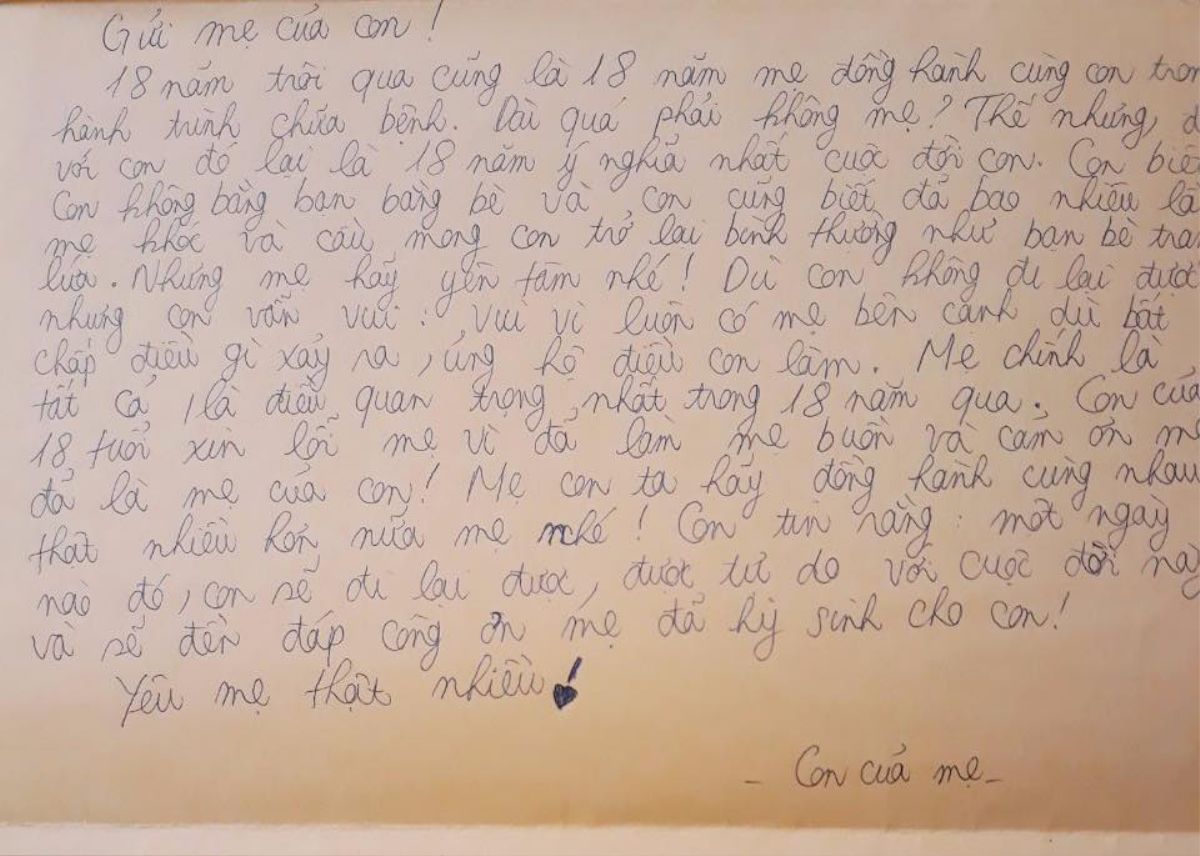 Gửi mẹ của con!
18 năm trôi qua cũng là 18 năm mẹ đồng hành cùng con tron
hành trình chữa bệnh. Dài quá phải không mẹ? Thế nhưng, đ
với con đó lại là 18 năm ý nghĩa nhất cuộc đời con. Con biế
Con không bằng bạn bằng bè và con cũng biết đã bao nhiêu lầ
mẹ khóc và cầu mong con trở lại bình thường như bạn bè tra
lứa. Nhưng mẹ hãy yên tâm nhé! Dù con không đi lại được
nhưng con vẫn vui: Vui vì luôn có mẹ bên cạnh dù bất
chấp điều gì xảy ra, ủng hộ điều con làm. Mẹ chính là
tất cả, là điều quan trọng nhất trong 18 năm qua. Con của
18 tuổi xin lỗi mẹ vì đã làm mẹ buồn và cảm ơn mẹ
đã là mẹ của con! Mẹ con ta hãy đồng hành cùng nhau
thật nhiều hơn nữa mẹ nhé! Con tin rằng: một ngày
nào đó, con sẽ đi lại được, được tự do với cuộc đời này
và sẽ đền đáp công ơn mẹ đã hy sinh cho con!
Yêu mẹ thật nhiều!
- Con của mẹ -